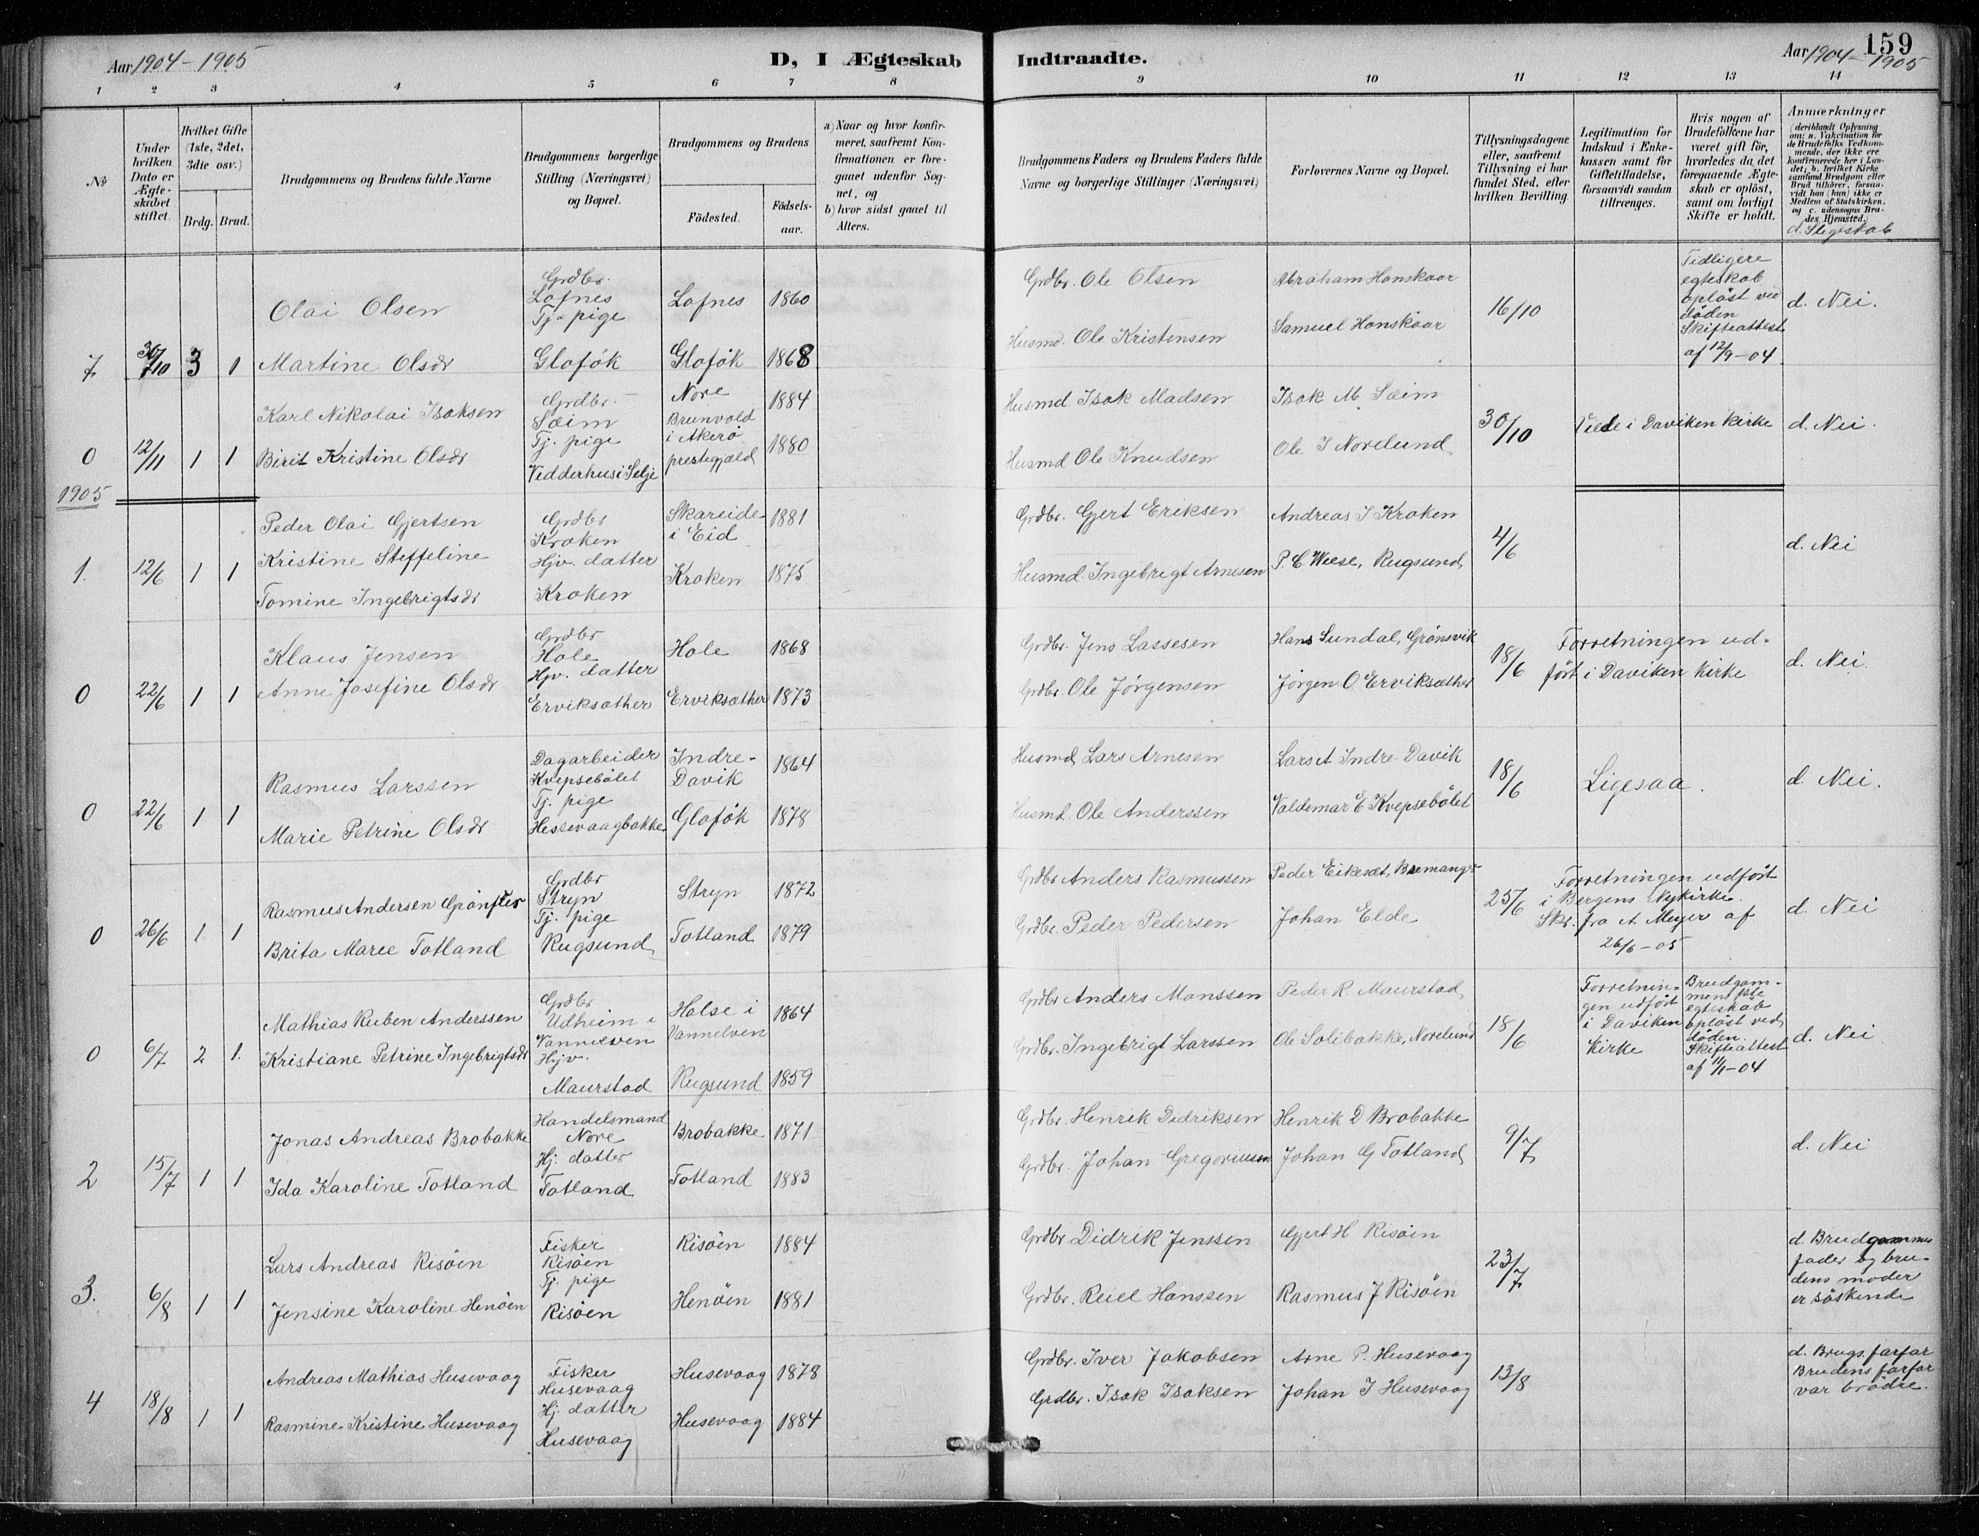 Aar 1904-1905
D, I Ægteskab Indtraadte.
159
Aar 1904-1905
1 2 3 4 5 6 7 8 9 10 11 12 13 14
No
Under hvilken Dato er Ægteskabet stiftet.
Hvilket Gifte (1ste, 2det, 3die osv.)
Brdg. Brud.
Brudgommens og Brudens fulde Navne
Brudgommens borgerlige Stilling (Næringsvei) og Bopæl.
Brudgommens og Brudens
Födested. Födsels-aar.
a) Naar og hvor konfirmeret, saafremt Konfirmationen er foregaaet udenfor Sognet, og
b) hvor sidst gaaet til Alters.
Brudgommens Faders og Brudens Faders fulde Navne og borgerlige Stillinger (Næringsvei)
Forlovernes Navne og Bopæl.
Tillysningsdagene eller, saafremt Tillysning ei har fundet Sted, efter hvilken Bevilling.
Legitimation for Indskud i Enkekassen samt for Giftetilladelse, forsaavidt saadan tiltrænges.
Hvis nogen af Brudefolkene har været gift för, hvorledes da det foregaaende Ægteskab er oplöst, samt om lovligt Skifte er holdt.
Anmærkninger
d. Slægtskab
7 30/10 3 1
Olai Olsen
Martine Olsdr
Grdbr.
Lofnes
Tj. pige
Gloføk
Lofnes 1860
Gloføk 1868
Grdbr. Ole Olsen
Husmd. Ole Kristensen
Abraham Honskaar
Samuel Honskaar
16/10
Tidligere
egteskab
opløst ved
døden
Skifteattest
af 12/9-04
d. Nei.
0 12/11 1 1
Karl Nikolai Isaksen
Birit Kristine Olsdr
Grdbr.
Sæim
Tj. pige
Vedderhus i Selje
Nore 1884
Brunvold
i Akerø
prestegjæld 1880
Husmd Isak Madsen
Husmd Ole Knudsen
Isak M. Sæim
Ole I Norelund
30/10
Viede i Daviken kirke
d. Nei.
1905
1. 12/6 1 1
Peder Olai Gjertsen
Kristine Steffeline
Tomine Ingebrigtsdr
Grdbr
Kroken
Hjv. datter
Kroken
Skareide
i Eid 1881
Kroken 1875
Grdbr. Gjert Eriksen
Husmd Ingebrigt Arnesen
Andreas I Kroken
P. C Weese, Rugsund
4/6
d. Nei
0 22/6 1 1
Klaus Jensen
Anne Josefine Olsdr
Grdbr
Hole
Hjv. datter
Erviksæther
Hole 1868
Erviksæther 1873
Grdbr. Jens Lassesen
Grdbr. Ole Jørgensen
Hans Sundal, Grønsvik
Jørgen O Erviksæther
18/6
Forretningen ud-
ført i Daviken kirke
d. Nei.
0 22/6 1 1
Rasmus Larssen
Marie Petrine Olsdr
Dagarbeider
Kvepsebølet
Tj. pige
Hessevaagbakke
Indre-
Davik 1864
Gloføk 1878
Husmd Lars Arnesen
Husmd. Ole Anderssen
Lars A Indre Davik
Valdemar E Kvepsebølet
18/6
Ligesaa.
d. Nei.
0 26/6 1 1
Rasmus Andersen
Brita Marie Totland
Grdbr
Stryn
Tj. pige
Rugsund
Stryn 1872
Totland 1879
Grdbr Anders Rasmussen
Grdbr. Peder Pedersen
Peder Eikeset, Bremanger
Johan Elde
25/6
Forretningen udført
i Bergens Nykirke.
Skr. fra A Meyer af
26/6-05
d. Nei
0 6/7 2 1.
Mathias Ruben Anderssen
Kristiane Petrine Ingebrigtsdr
Grdbr
Udheim i
Vannelven
Hjv.
Maurstad
Holse i
Vannelven 1864
Rugsund 1859
Grdbr Anders Monssen
Grdbr. Ingebrigt Larssen
Peder R. Maurstad,
Ole Solibakke, Norelund
18/6
Forretnin-
gen udført
i Daviken
Kirke
Brudgom-
mens 1ste
egteskab
opløst ved
døden.
Skifteattest
af 11/1-04
d. Nei
2 15/7 1 1
Jonas Andreas Brobakke
Ida Karoline Totland
Handelsmand
Nore
Hj. datter
Totland
Brobakke 1871
Totland 1883
Grdbr. Henrik Didriksen
Grdbr. Johan Gregoriussen
Henrik D Brobakke
Johan G Totland
9/7
d. Nei
3. 6/8 1 1
Lars Andreas Risöen
Jensine Karoline Henöen
Fisker
Risöen
Tj. pige
Risöen
Risöen 1884
Henöen 1881
Grdbr Didrik Jenssen
Grdbr. Reiel Hanssen
Gjert H Risöen
Rasmus J Risöen
23/7
d. Brudgommens
fader og bru-
dens moder
er søskende
4 18/8 1 1
Andreas Mathias Husevaag
Rasmine Kristine Husevaag
Fisker
Husevaag
Hj. datter
Husevaag
Husevaag 1878
Husevaag 1884
Grdbr. Iver Jakobsen
Grdbr. Isak Isaksen
Arne P. Husevaag
Johan I Husevaag
13/8
d. Brugs. farfar
Brudens farfar
var brødre.